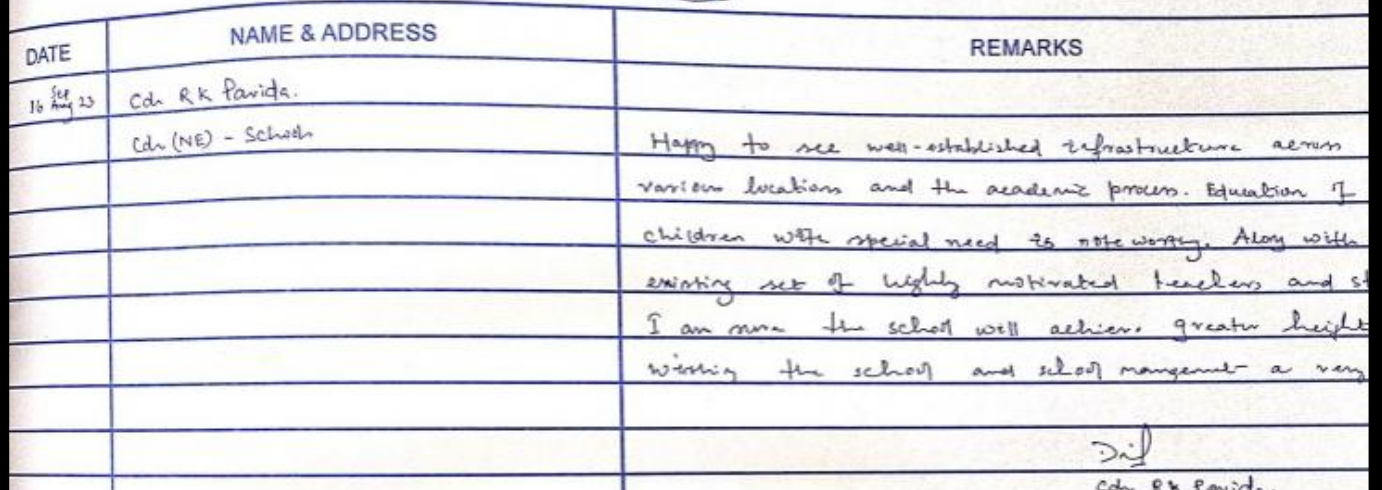 DATE NAME & ADDRESS REMARKS
16 Sep Aug 23 Cdr RK Parida.
Cdr (NE) - Schools
Happy to see well-established infrastructure across
various locations and the academic process. Education of
children with special need is note worthy. Along with
existing set of highly motivated teachers and st
I am sure the school will achieve greater height
wishing the school and school mangement a very
Cdr RK Parida